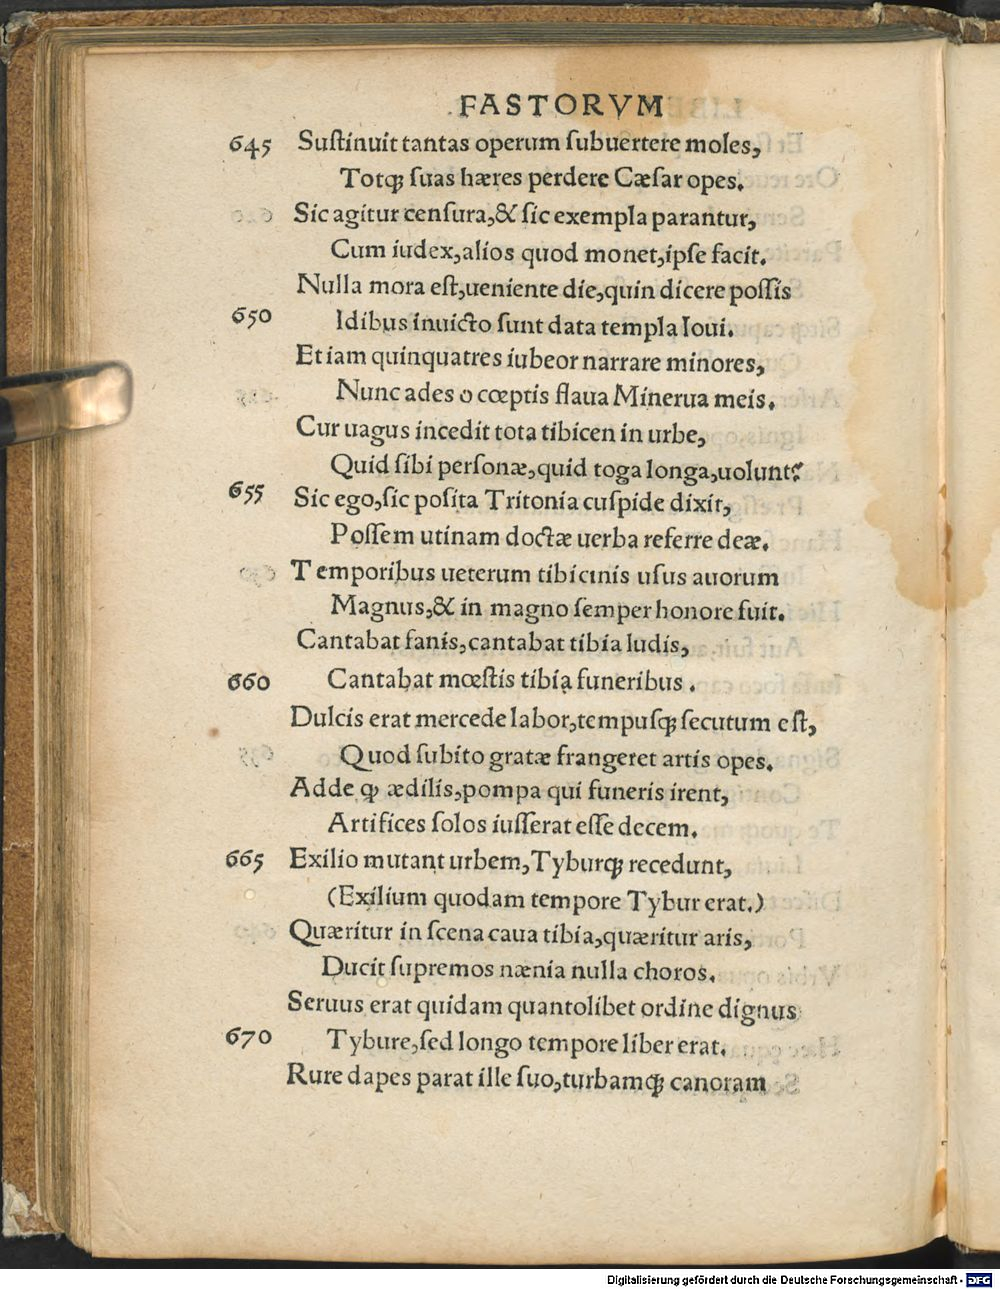 .FASTORVM
645 Suſtinuit tantas operum ſubuertere moles,
Totq; ſuas hæres perdere Cæſar opes.
Sic agitur cenſura,& ſic exempla parantur,
Cum iudex,alios quod monet,ipſe facit.
Nulla mora eſt,ueniente die,quin dicere poſſis
650 Idibus inuicto ſunt data templa Ioui.
Et iam quinquatres iubeor narrare minores,
Nunc ades o cœptis flaua Minerua meis.
Cur uagus incedit tota tibicen in urbe,
Quid ſibi perſonæ,quid toga longa,uolunt?
655 Sic ego,ſic poſita Tritonia cuſpide dixit,
Poſſem utinam doctæ uerba referre deæ.
Temporibus ueterum tibicinis uſus auorum
Magnus,& in magno ſemper honore fuit.
Cantabat fanis,cantabat tibia ludis,
660 Cantabat mœſtis tibia funeribus.
Dulcis erat mercede labor,tempuſq; ſecutum eſt,
Quod ſubito gratæ frangeret artis opes.
Adde ꝙ ædilis,pompa qui funeris irent,
Artifices ſolos iuſſerat eſſe decem.
665 Exilio mutant urbem,Tyburq; recedunt,
(Exilium quodam tempore Tybur erat.)
Quæritur in ſcena caua tibia,quæritur aris,
Ducit ſupremos nænia nulla choros.
Seruus erat quidam quantolibet ordine dignus
670 Tybure,ſed longo tempore liber erat.
Rure dapes parat ille ſuo,turbamq; canoram
Digitalisierung gefördert durch die Deutsche Forschungsgemeinschaft - DFG